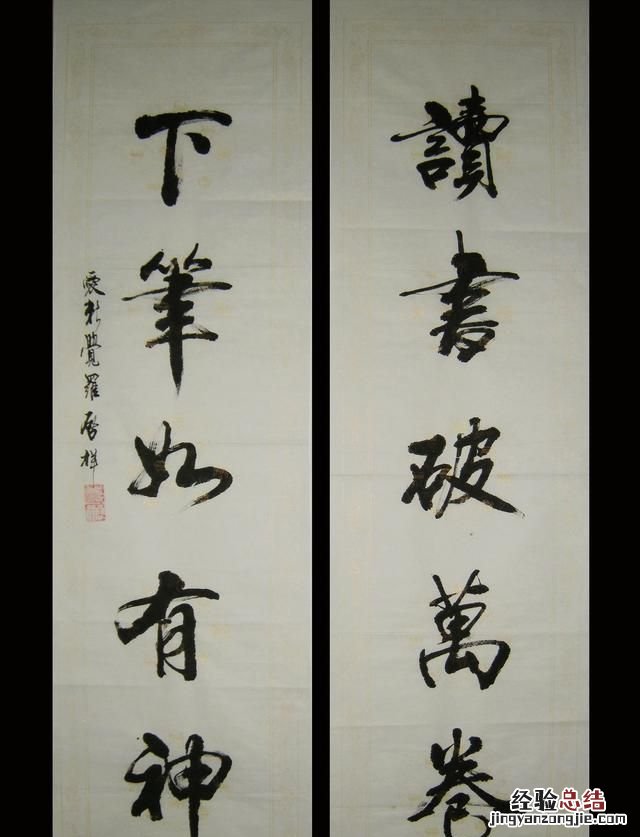 讀書破萬卷
下筆如有神
愛新覺羅啓祥
经验总结
jingyanzongjie.com